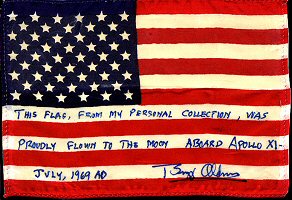 THIS FLAG, FROM MY PERSONAL COLLECTION, WAS
PROUDLY FLOWN TO THE MOON ABOARD APOLLO XI-
JULY, 1969 AD Buzz Aldrin